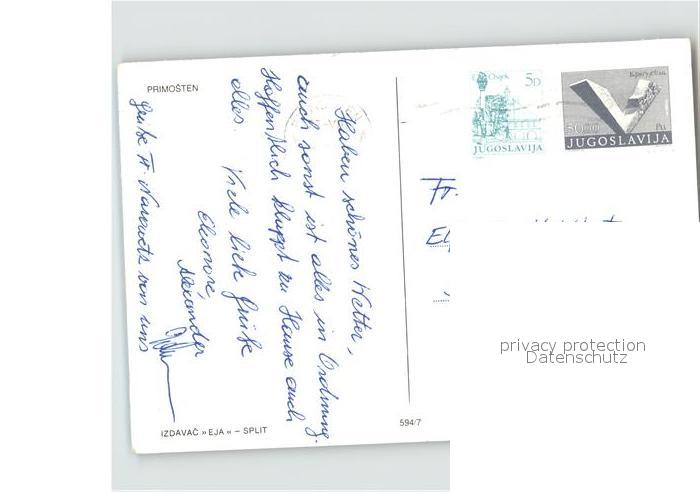 PRIMOŠTEN
Haben schönes Wetter,
auch sonst ist alles in Ordnung.
Hoffentlich klappt zu Hause auch
alles. Viele liebe Grüße
Eleonore,
Alexander
Grüße Fr. von uns
IZDAVAČ »EJA« – SPLIT
594/7
Osijek 5D
JUGOSLAVIJA
JUGOSLAVIJA
Fr.
privacy protection
Datenschutz